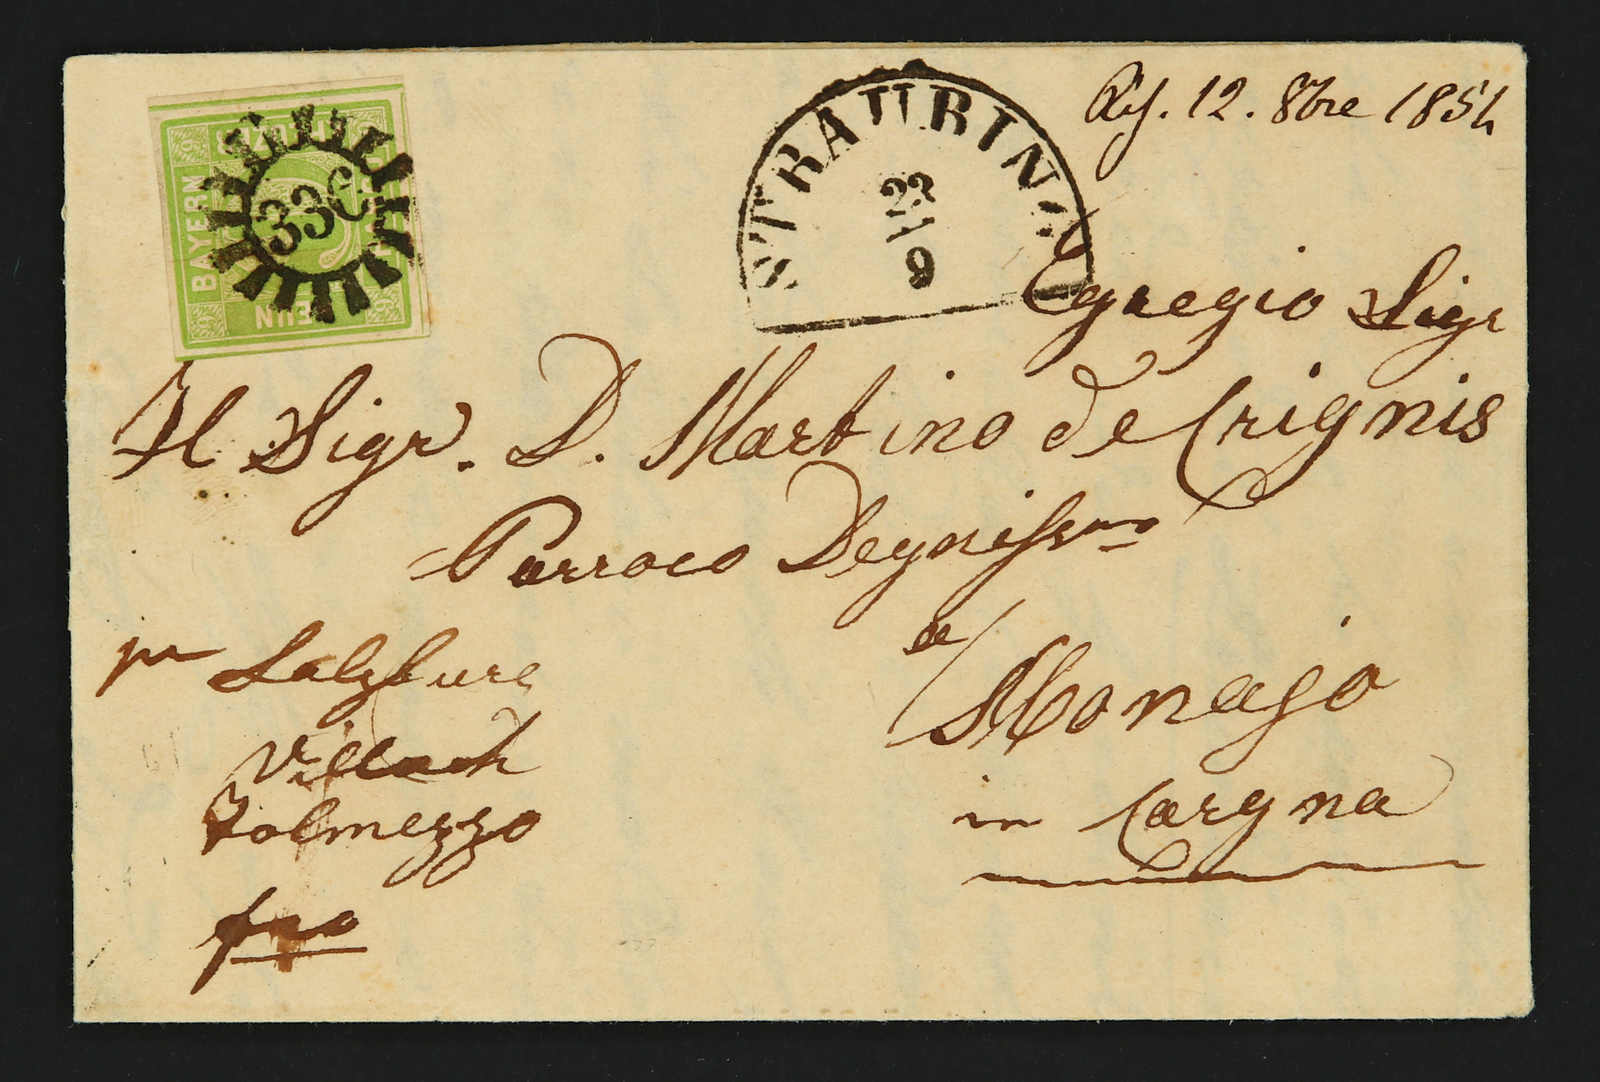 Ris. 12. 8bre 1854
STRAUBING
23
9
BAYERN
NEUN
336
Egregio Sigr
Il Sigr. D. Martino de Crignis
Parroco Degnissmo
de
Monajo
in Cargna
per Salzburg
Villach
Tolmezzo
fro